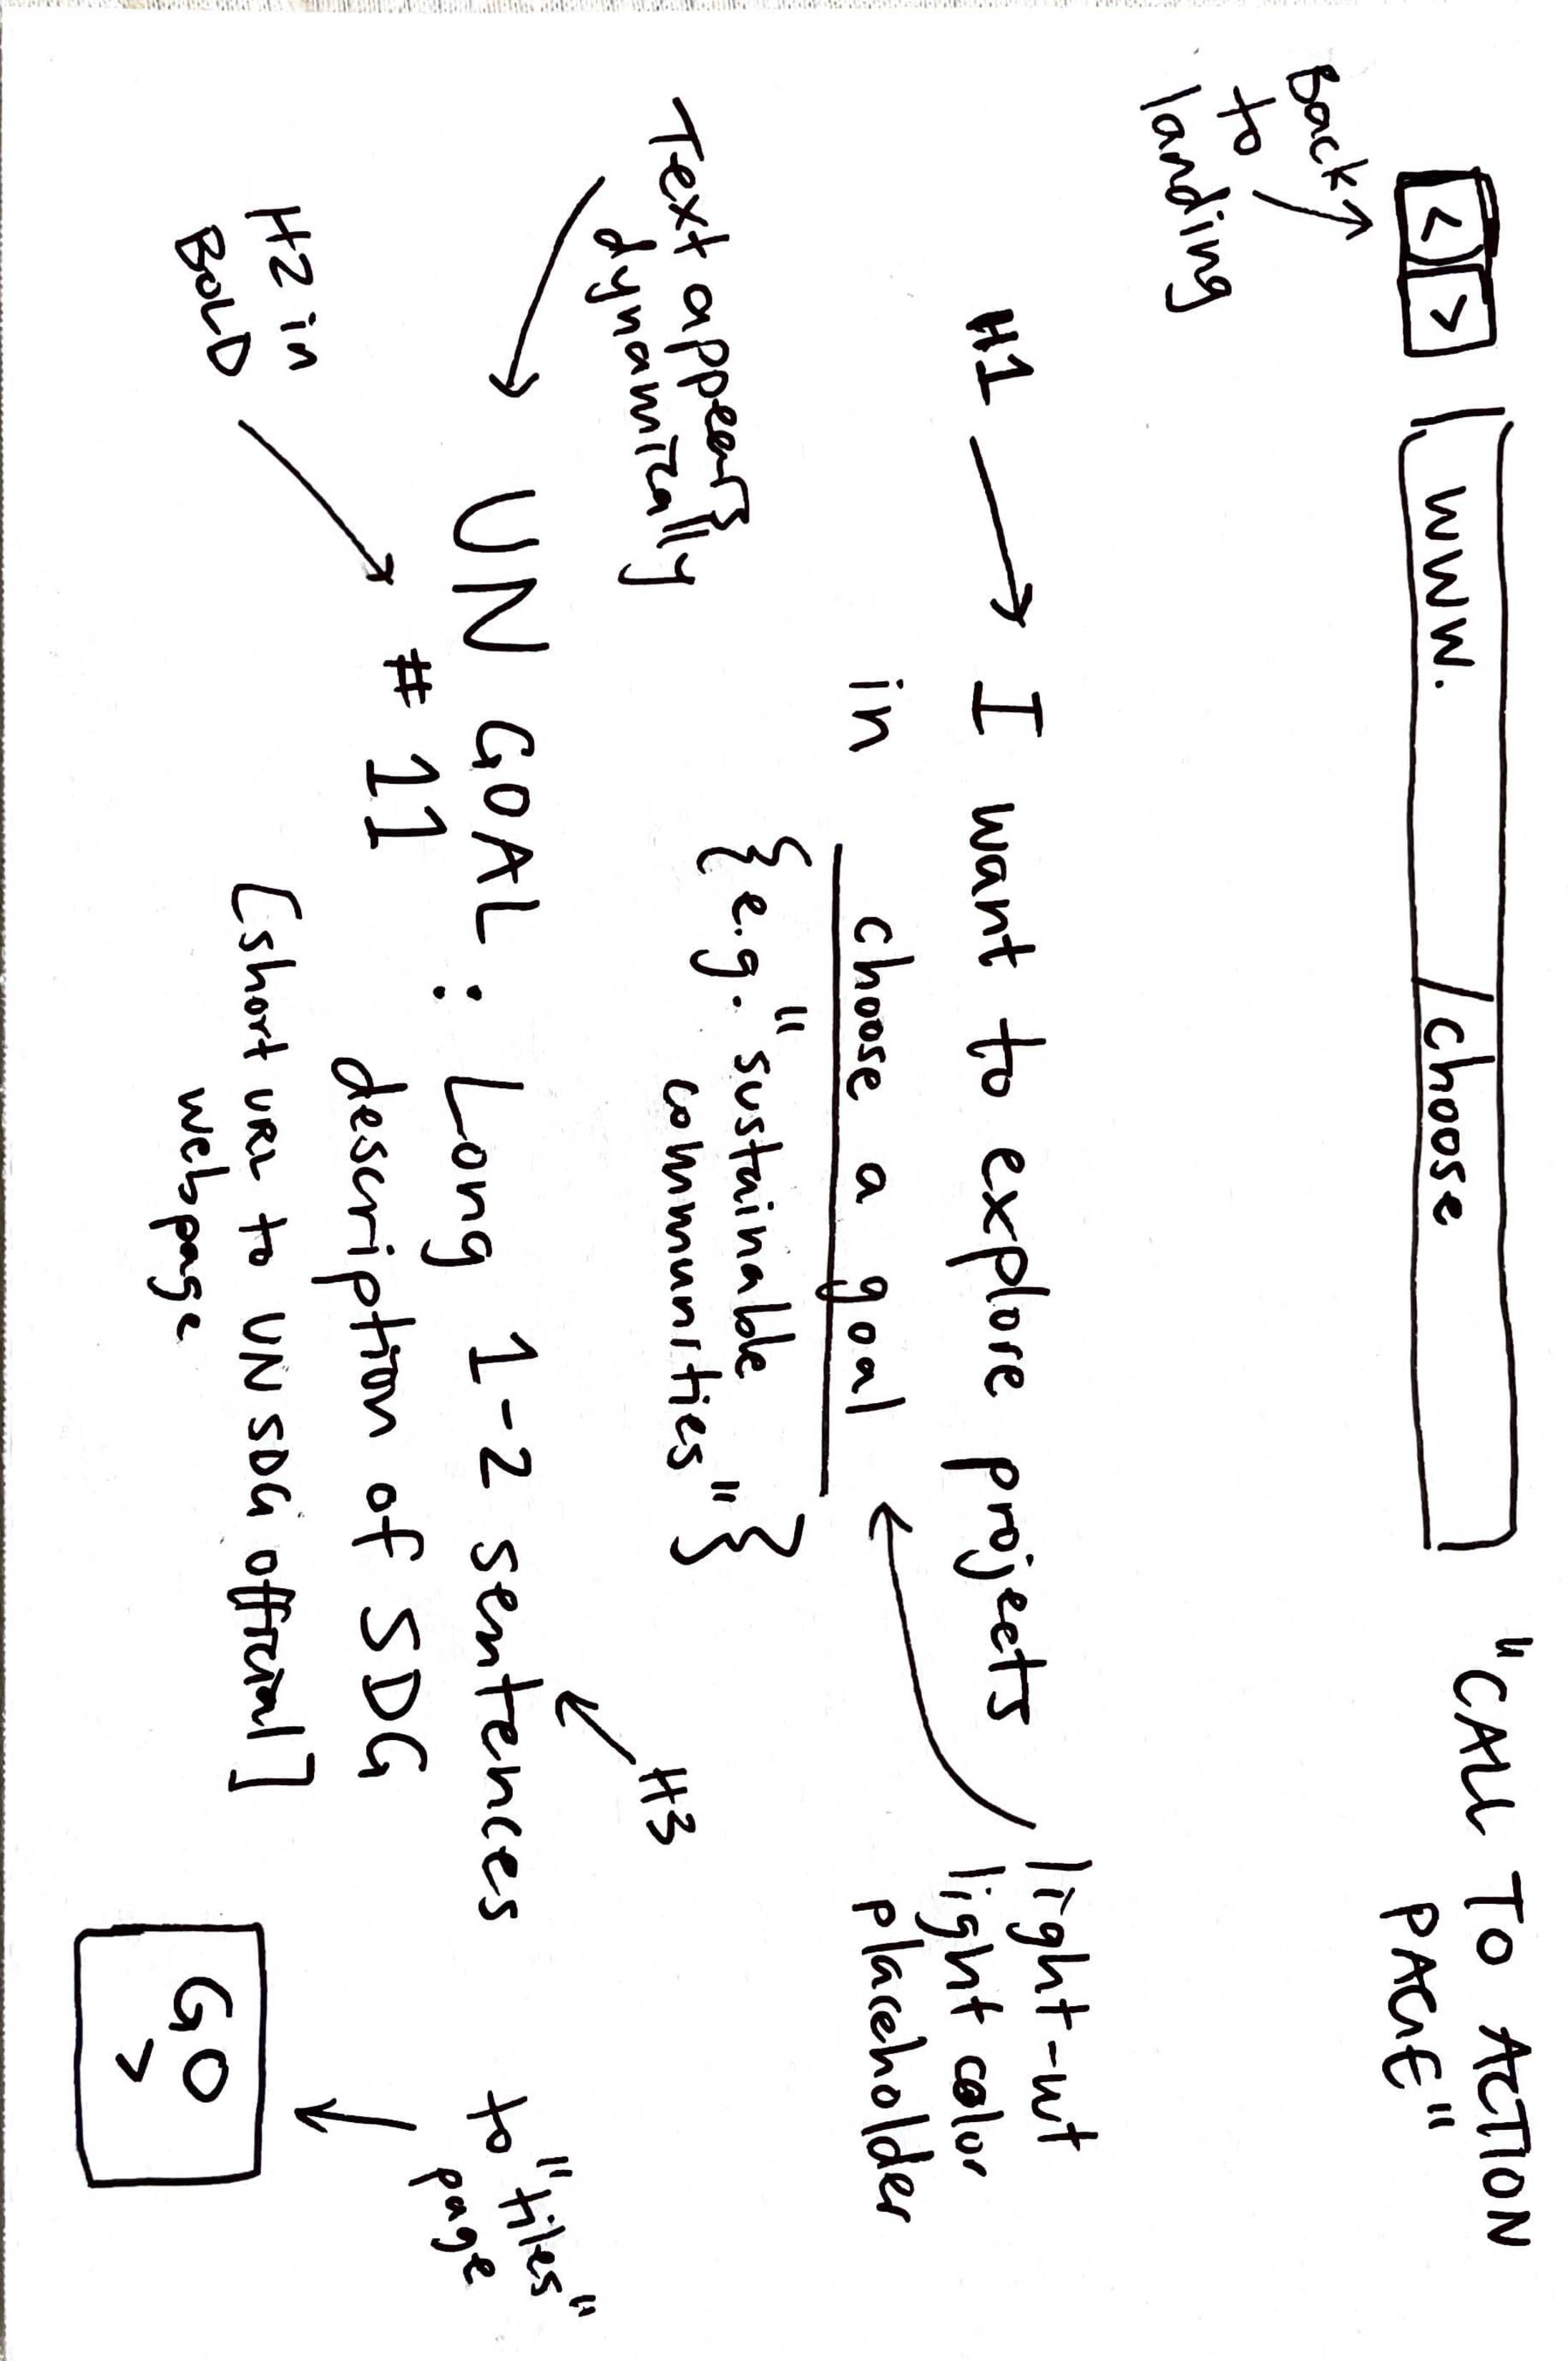 < >
www. /choose
"CALL TO ACTION
PAGE"
Back
to
landing
H1
I want to explore projects
in choose a goal
light-wt
light color
placeholder
{e.g. "sustainable
communities"}
Text appears
dynamically
H3
UN GOAL : Long 1-2 sentences
# 11 description of SDG
[short URL to UN SDG official]
webpage
H2 in
BOLD
to "tiles"
page
GO
>